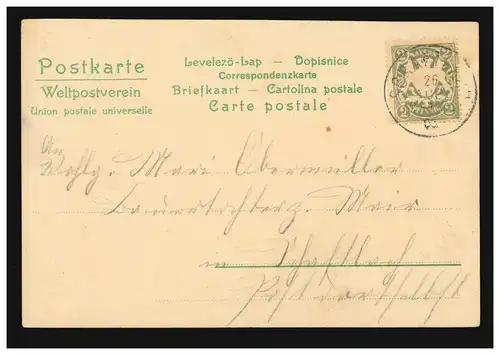 Postkarte
Weltpostverein
Union postale universelle
Levelező-Lap — Dopisnice
Correspondenzkarte
Briefkaart — Cartolina postale
Carte postale
2 2
26
03
An
Wohlg. Mari Obermüller
Bauerstochter z. Mair
in Schaftlach
Post dortselbst